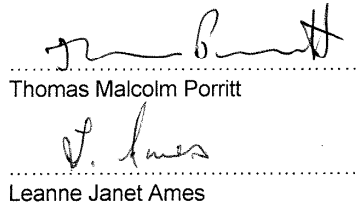 Thomas Malcolm Porritt
L. Ames
Leanne Janet Ames